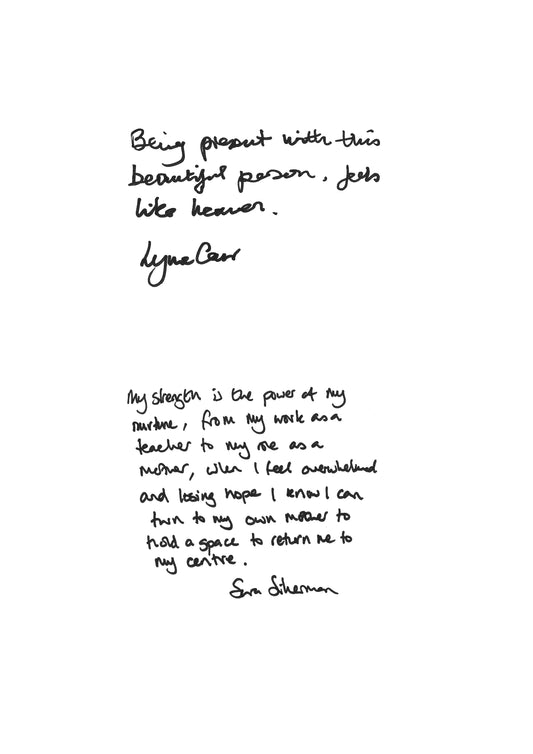 Being present with this
beautiful person, feels
like heaven.
Lynne Carr
My strength is the power of my
nurture, from my work as a
teacher to my role as a
mother, when I feel overwhelmed
and losing hope I know I can
turn to my own mother to
hold a space to return me to
my centre.
Sara